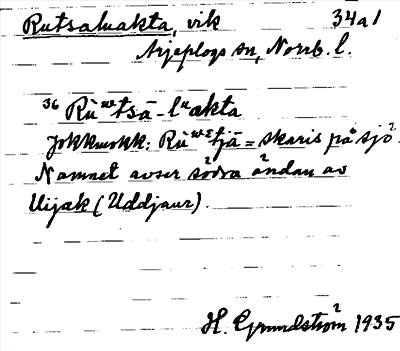 Rutsaluakta, vik 34a1
Arjeplogs sn, Norrb. l.
36 Rùʷᵉtsā-lᵘakta
Jokkmokk: Rùʷᵋtjā = skaris på sjö.
Namnet avser södra ändan av
Uijak (Uddjaur).
H. Grundström 1935